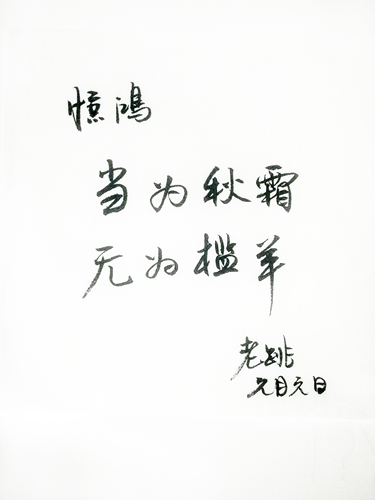 惊鸿
当为秋霜
无为槛羊
老姚
元月元日